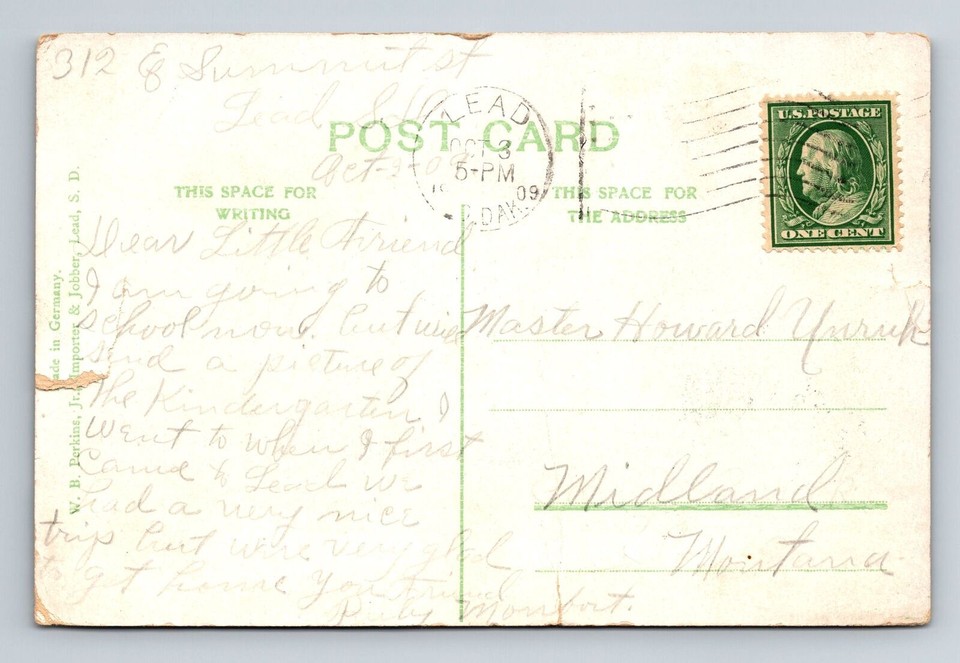 312 E Summit st
Lead S.D.
POST CARD
Oct-3-09
LEAD
OCT 3
5-PM
09
S.DAK.
U.S. POSTAGE
ONE CENT
THIS SPACE FOR
WRITING
THIS SPACE FOR
THE ADDRESS
ade in Germany.
W. B. Perkins, Jr., Importer & Jobber, Lead, S. D.
Dear Little Friend
I am going to
school now. but will
send a picture of
the Kindergarten I
went to when I first
came to Lead we
had a very nice
trip but were very glad
to get home Your Friend
Ruby Monfort.
Master Howard Unruh
Midland
Montana